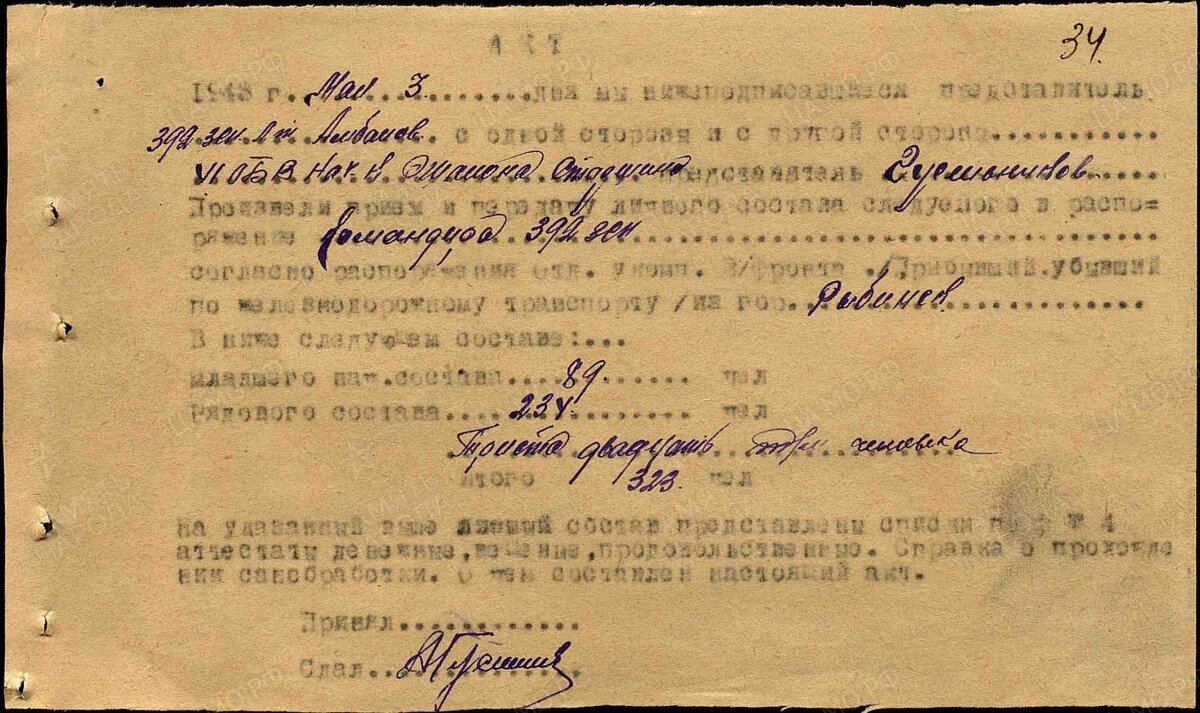 34.
АКТ
1943 г. Мая 3 дня мы нижеподписавшиеся представитель
392 зсп Л-т Албанов. с одной стороны и с другой стороны
VI ОБВ представитель Гусельников
Произвели прием и передачу личного состава следуемого в распо=
ряжение Командира 392 зсп
согласно распоряжения отд. укомп. З/фронта ./Прибывший.убывший
по железнодорожному транспорту /из гор. Рыбинск
В ниже следующем составе:...
младшего нач.состава....89...... чел
Рядового состава....234........ чел
Триста двадцать три человека
Итого 323. чел
На указанный выше личный состав представлены списки по ф № 4
аттестаты денежные,вещевые,продовольственные. Справка о прохожде
нии санобработки. О чем составлен настоящий акт.
Принял............
Сдал..